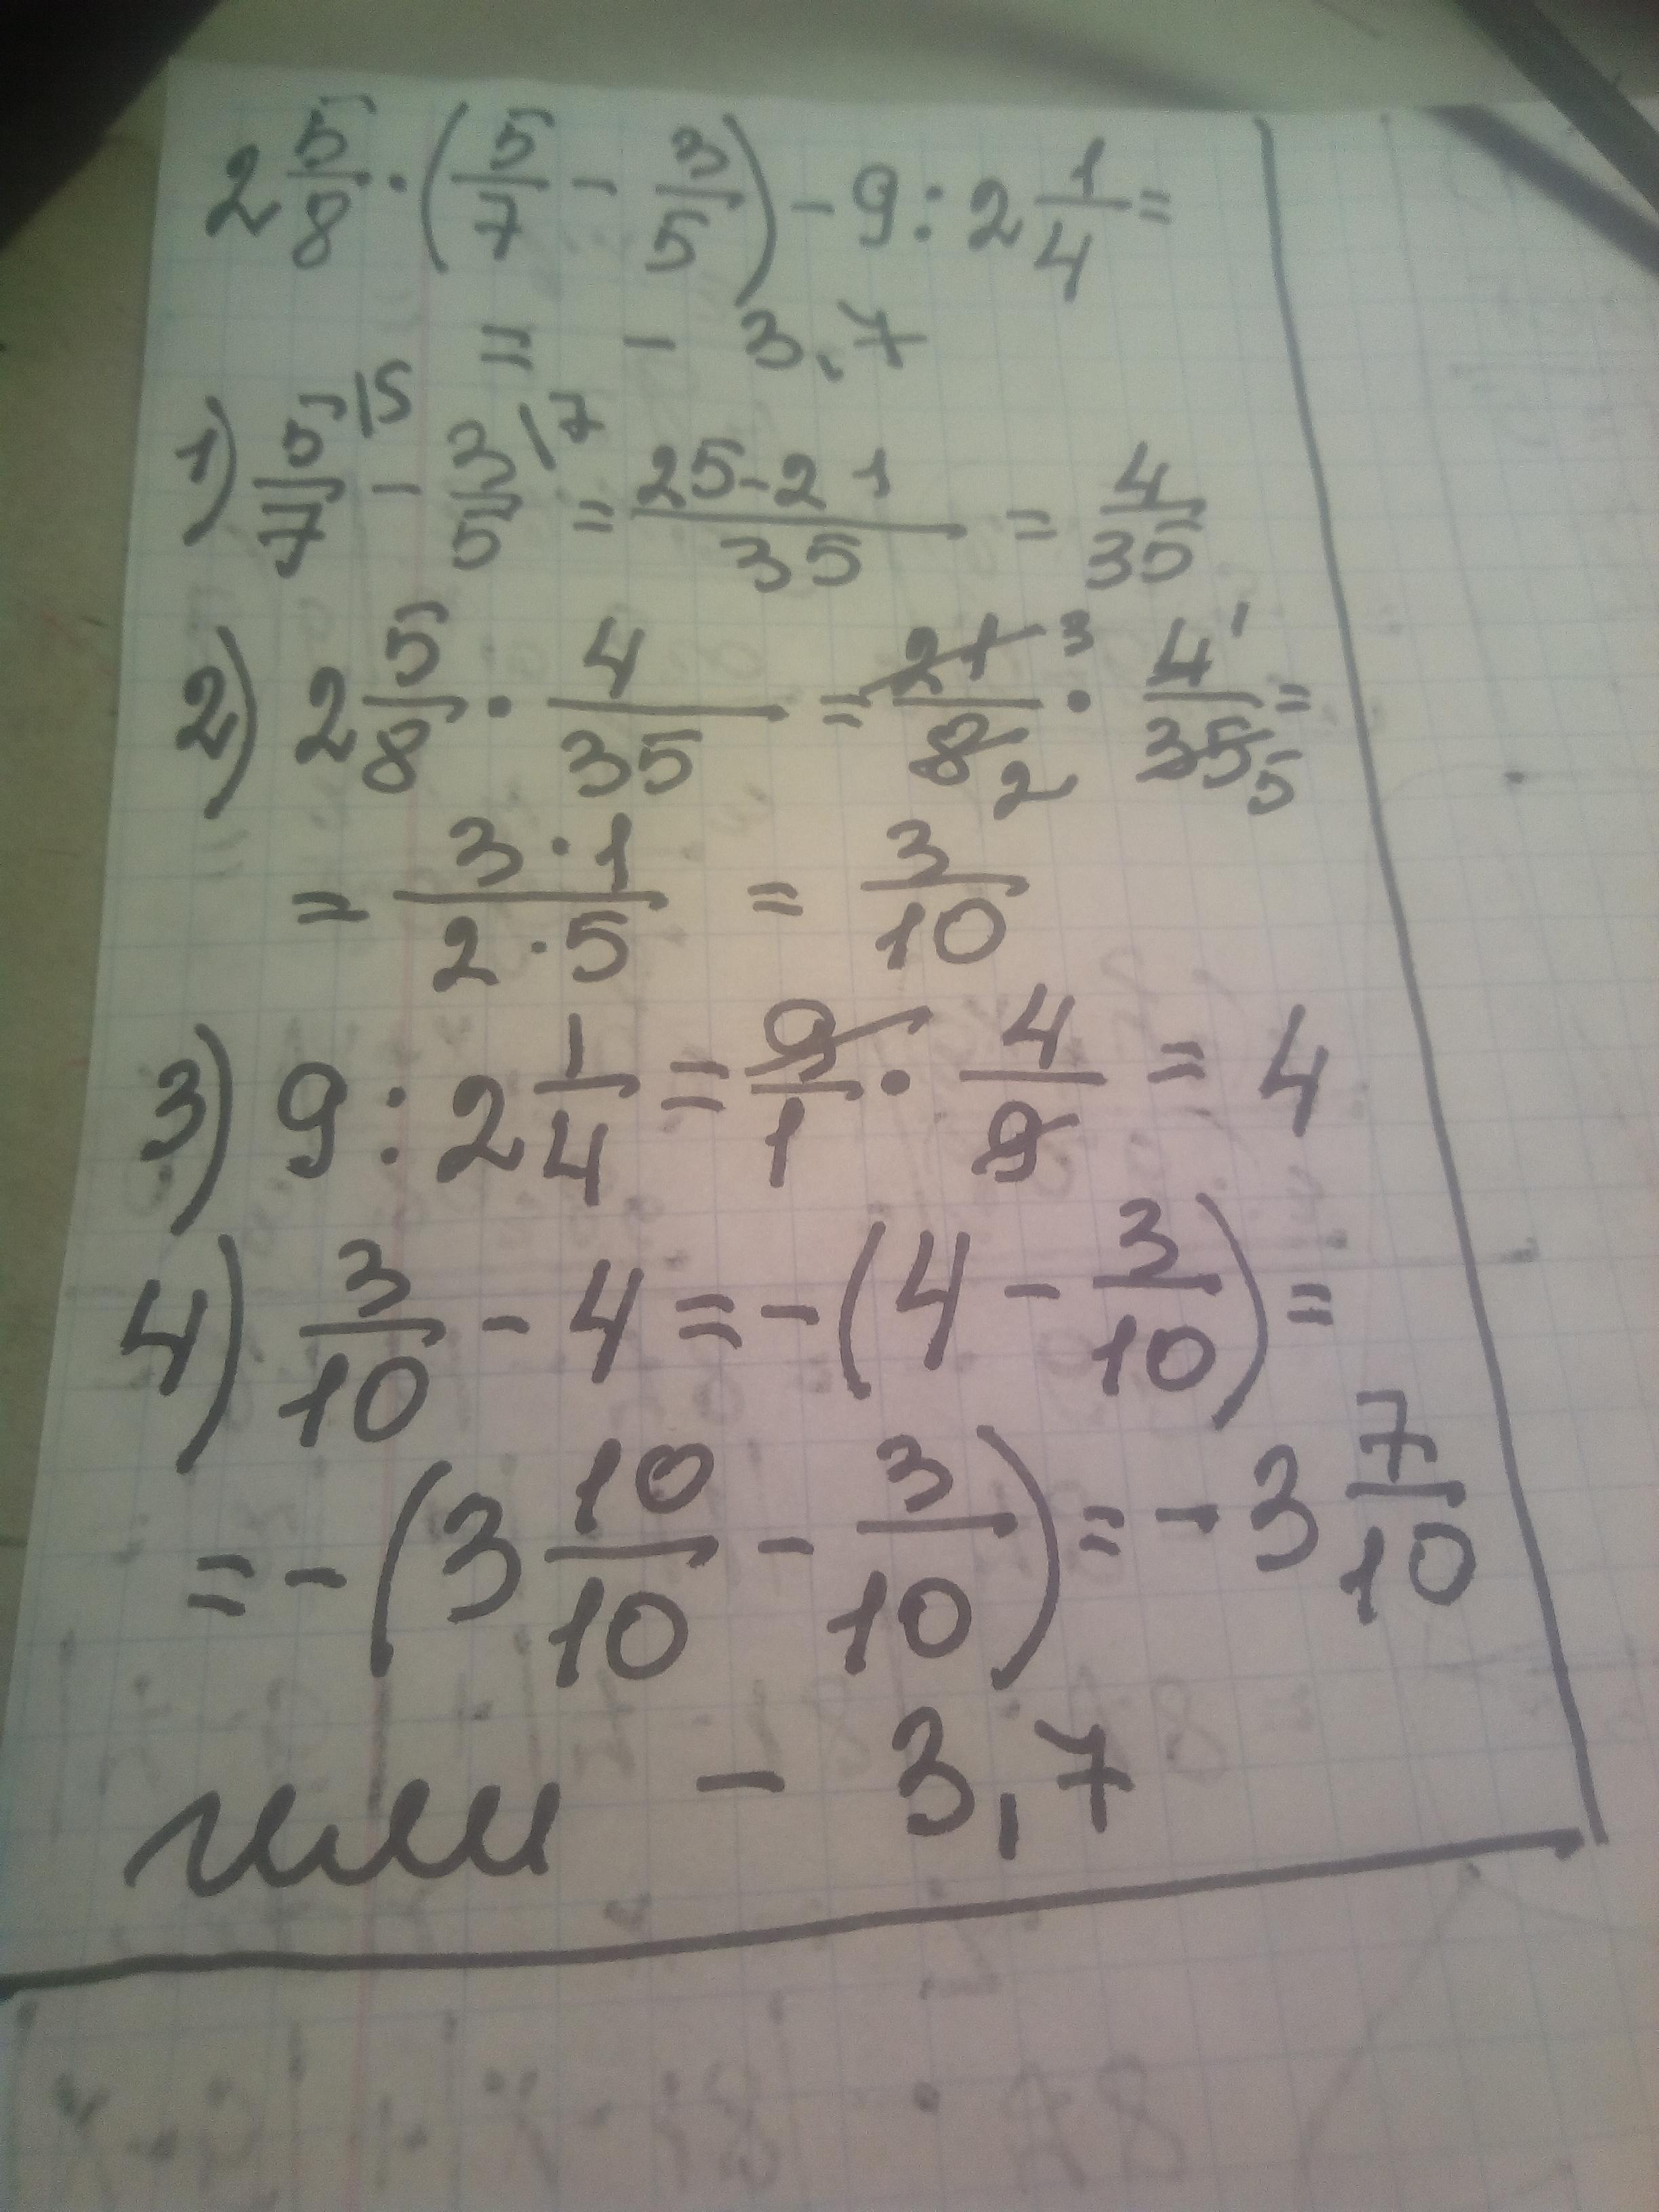 2 5/8 · (5/7 - 3/5) - 9 : 2 1/4 =
= - 3,7
1) 5/7 |5 - 3/5 |7 = 25-21/35 = 4/35
2) 2 5/8 · 4/35 = 21 3/8 2 · 4 1/35 5 =
= 3·1/2·5 = 3/10
3) 9 : 2 1/4 = 9/1 · 4/9 = 4
4) 3/10 - 4 = - (4 - 3/10) =
= - (3 10/10 - 3/10) = - 3 7/10
или - 3,7